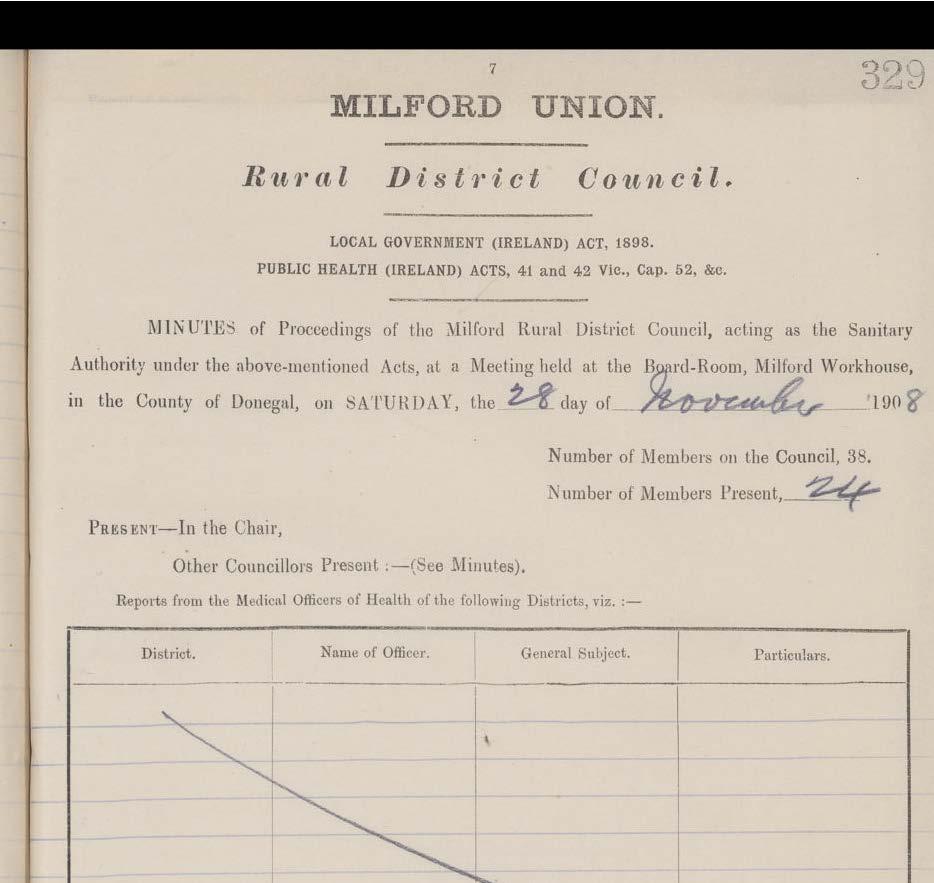 7
329
MILFORD UNION.
Rural District Council.
LOCAL GOVERNMENT (IRELAND) ACT, 1898.
PUBLIC HEALTH (IRELAND) ACTS, 41 and 42 Vic., Cap. 52, &c.
MINUTES of Proceedings of the Milford Rural District Council, acting as the Sanitary
Authority under the above-mentioned Acts, at a Meeting held at the Board-Room, Milford Workhouse,
in the County of Donegal, on SATURDAY, the 28 day of November 1908
Number of Members on the Council, 38.
Number of Members Present, 24
PRESENT—In the Chair,
Other Councillors Present :—(See Minutes).
Reports from the Medical Officers of Health of the following Districts, viz. :—
District. Name of Officer. General Subject. Particulars.